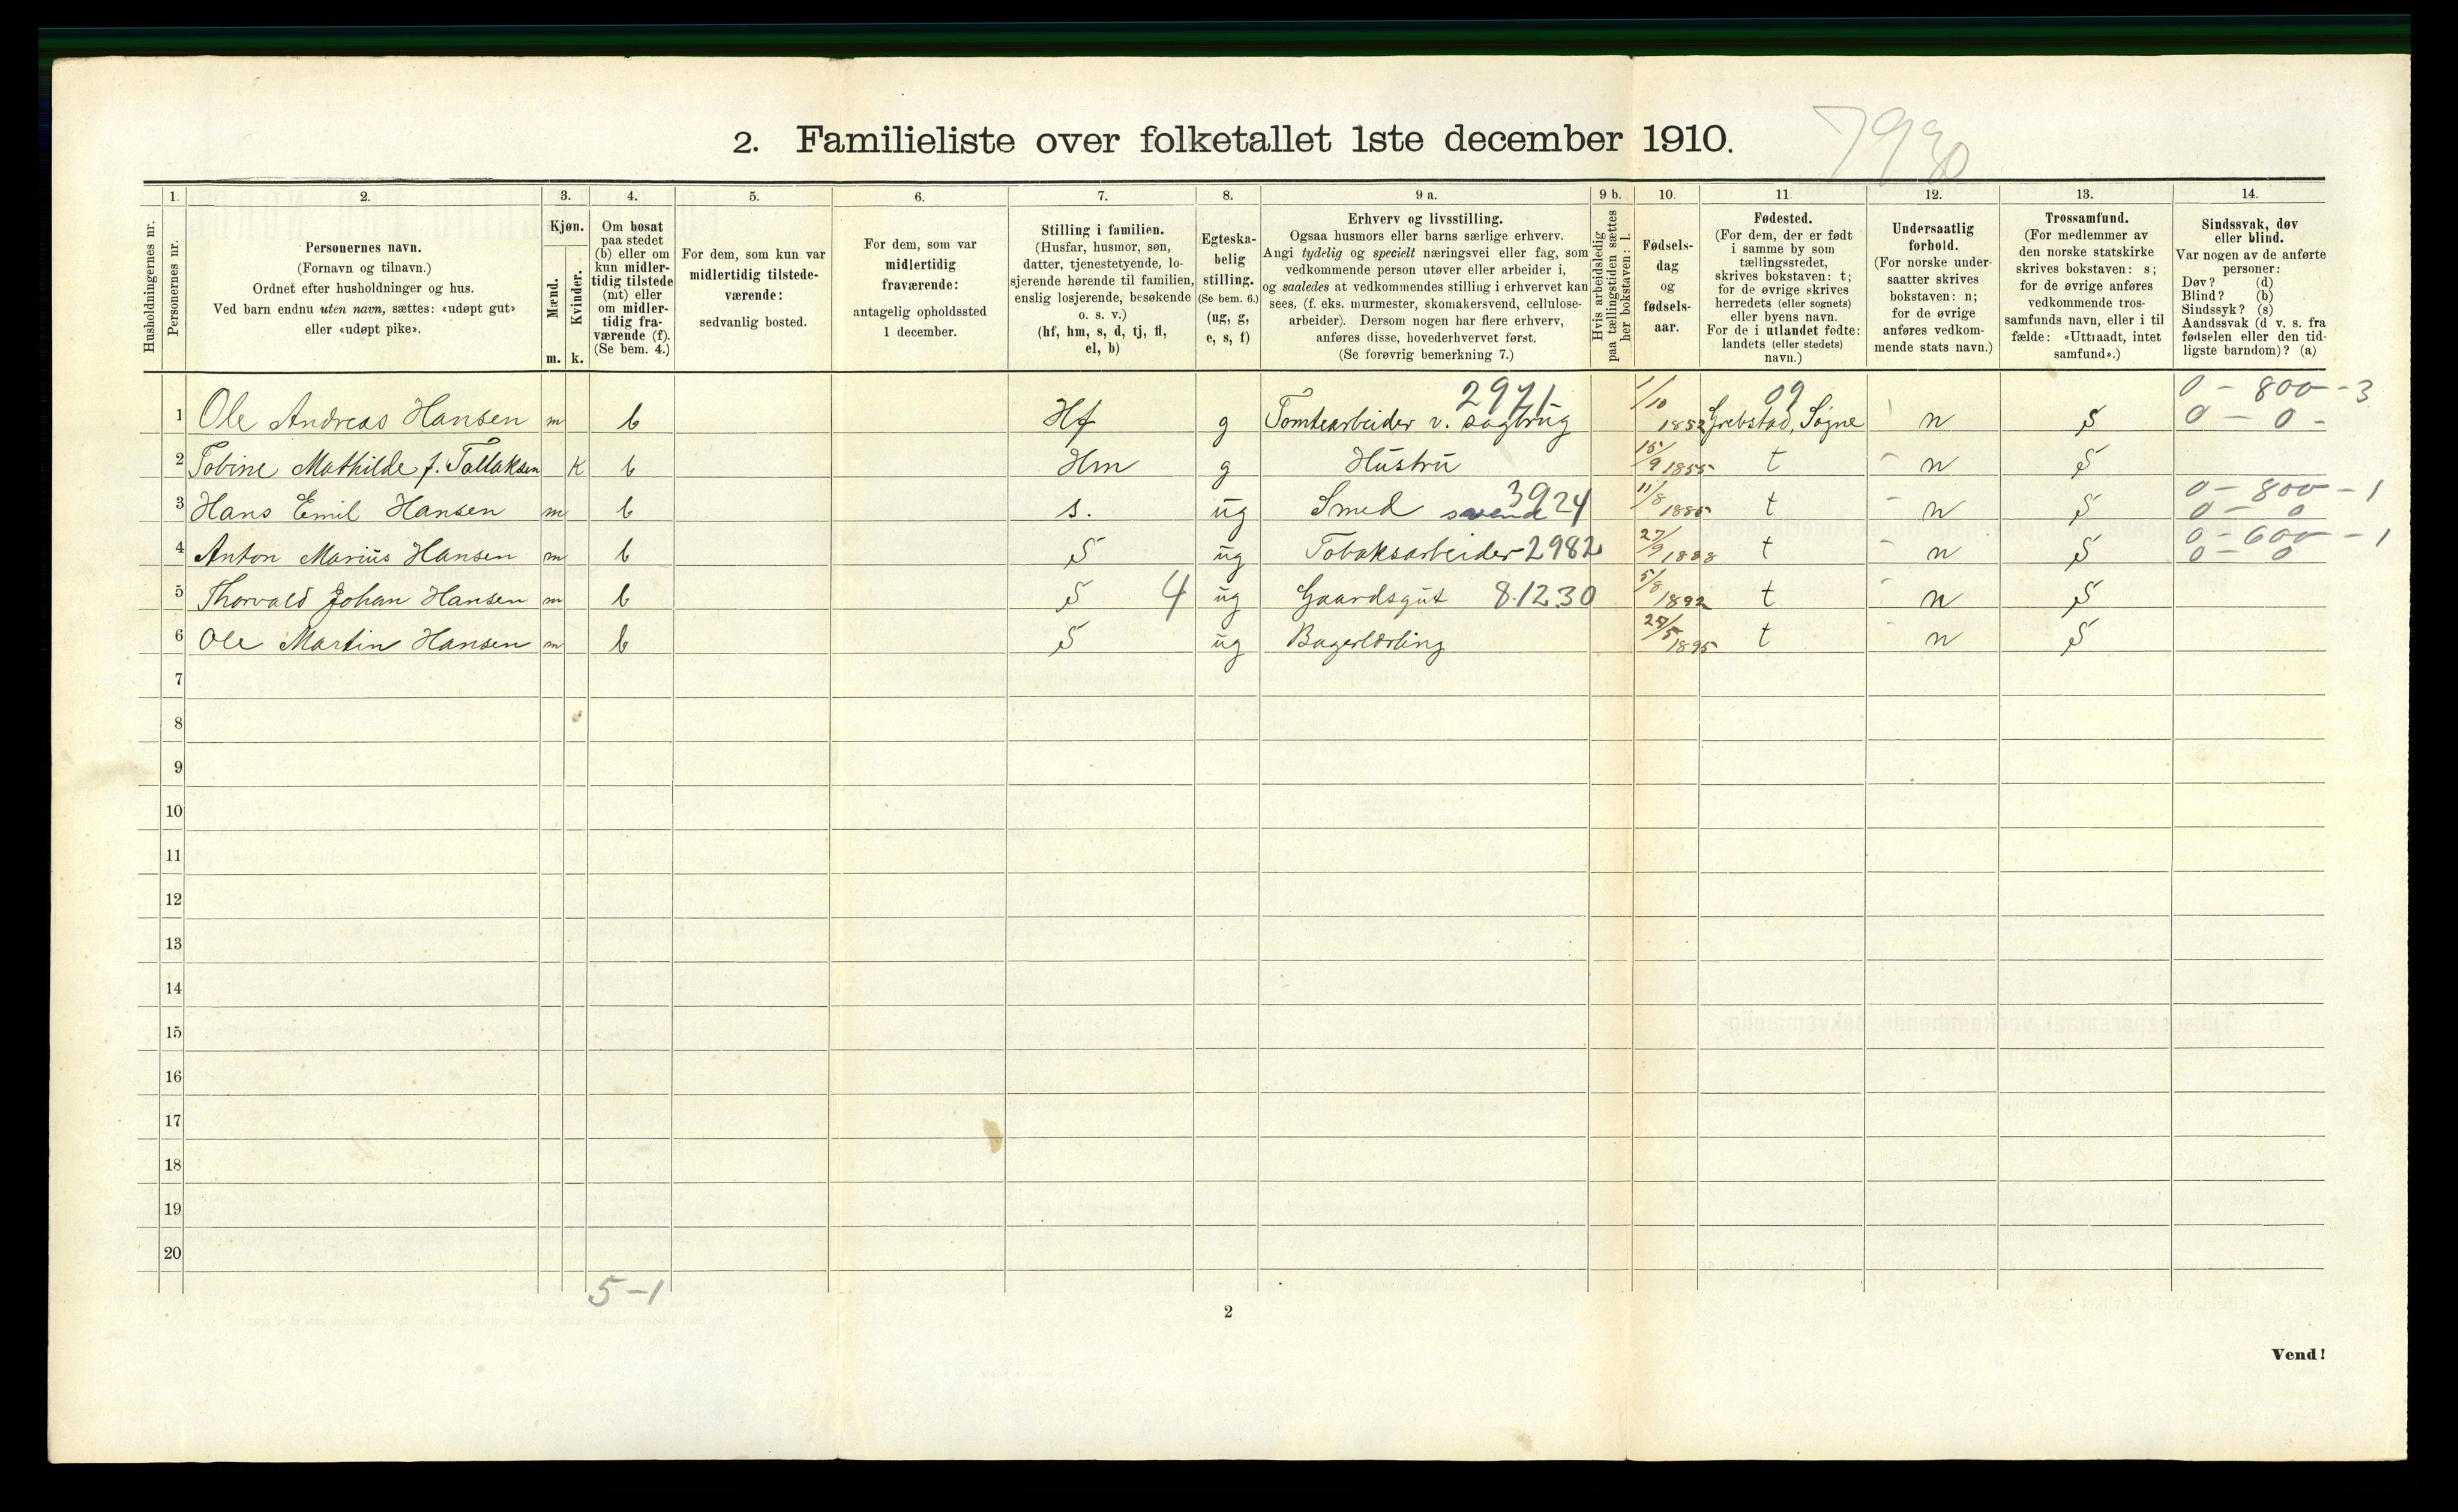 2. Familieliste over folketallet 1ste december 1910.
7930
1. 2. 3. 4. 5. 6. 7. 8. 9 a. 9 b. 10. 11. 12. 13. 14.
Husholdningernes nr.
Personernes nr.
Personernes navn.
(Fornavn og tilnavn.)
Ordnet efter husholdninger og hus.
Ved barn endnu uten navn, sættes: «udøpt gut»
eller «udøpt pike».
Kjøn.
Mænd.
Kvinder.
m. k.
Om bosat
paa stedet
(b) eller om
kun midler-
tidig tilstede
(mt) eller
om midler-
tidig fra-
værende (f).
(Se bem. 4.)
For dem, som kun var
midlertidig tilstede-
værende:
sedvanlig bosted.
For dem, som var
midlertidig
fraværende:
antagelig opholdssted
1 december.
Stilling i familien.
(Husfar, husmor, søn,
datter, tjenestetyende, lo-
sjerende hørende til familien,
enslig losjerende, besøkende
o. s. v.)
(hf, hm, s, d, tj, fl,
el, b)
Egteska-
belig
stilling.
(Se bem. 6.)
(ug, g,
e, s, f)
Erhverv og livsstilling.
Ogsaa husmors eller barns særlige erhverv.
Angi tydelig og specielt næringsvei eller fag, som
vedkommende person utøver eller arbeider i,
og saaledes at vedkommendes stilling i erhvervet kan
sees, (f. eks. murmester, skomakersvend, cellulose-
arbeider). Dersom nogen har flere erhverv,
anføres disse, hovederhvervet først.
(Se forøvrig bemerkning 7.)
Hvis arbeidsledig
paa tællingstiden sættes
her bokstaven: l.
Fødsels-
dag
og
fødsels-
aar.
Fødested.
(For dem, der er født
i samme by som
tællingsstedet,
skrives bokstaven: t;
for de øvrige skrives
herredets (eller sognets)
eller byens navn.
For de i utlandet fødte:
landets (eller stedets)
navn.)
Undersaatlig
forhold.
(For norske under-
saatter skrives
bokstaven: n;
for de øvrige
anføres vedkom-
mende stats navn.)
Trossamfund.
(For medlemmer av
den norske statskirke
skrives bokstaven: s;
for de øvrige anføres
vedkommende tros-
samfunds navn, eller i til
fælde: «Uttraadt, intet
samfund».)
Sindssvak, døv
eller blind.
Var nogen av de anførte
personer:
Døv? (d)
Blind? (b)
Sindssyk? (s)
Aandssvak (d v. s. fra
fødselen eller den tid-
ligste barndom)? (a)
2971 09 0 - 800 - 3
1 Ole Andreas Hansen m b Hf g Tomtearbeider v. sagbrug 1/10 1852 Grebstad, Søgne n S 0 - 0 -
2 Tobine Mathilde f. Tallaksen K b Hm g Hustru 15/9 1855 t n S
3 Hans Emil Hansen m b s. ug Smed svend 3924 11/8 1885 t n S 0 - 800 - 1
0 - 0
4 Anton Marius Hansen m b S ug Tobaksarbeider 2982 27/9 1888 t n S 0 - 600 - 1
0 - 0
5 Thorvald Johan Hansen m b S 4 ug Gaardsgut 8.12.30 5/8 1892 t n S
6 Ole Martin Hansen m b S ug Bagerlærling 1895 t n S
7
8
9
10
11
12
13
14
15
16
17
18
19
20
5-1
2
Vend!